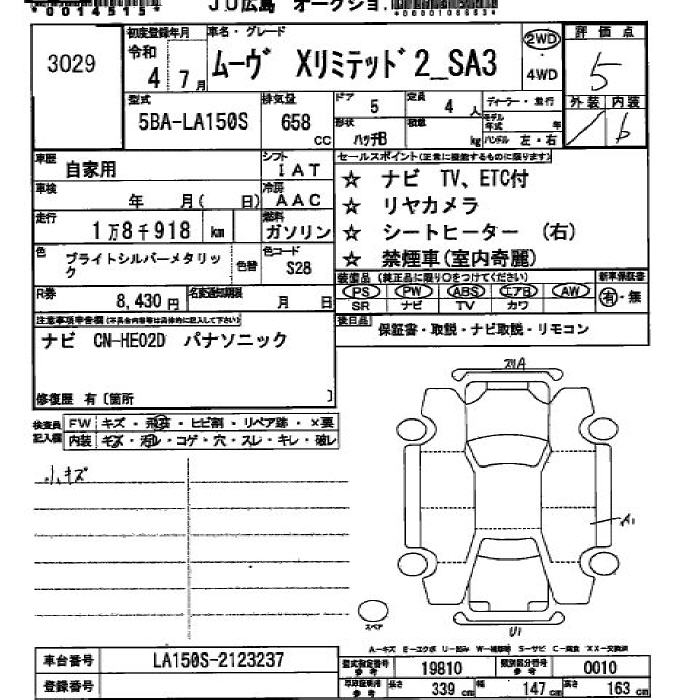 *0014515*
JU広島 オークショ.
*0000108663
3029
初度登録年月
令和
4 7月
車名・グレード
ムーヴ Xリミテッド2_SA3
2WD
・
4WD
評価点
5
外装 内装
b
型式
5BA-LA150S
排気量
658 CC
ドア 5
定員 4 人
ディーラー・並行
形状 ハッチB
積載 kg
モデル年式 年
ハンドル 左・右
車歴 自家用
シフト IAT
車検 年 月( 日)
冷房 AAC
走行 1万8千918 km
燃料 ガソリン
色 ブライトシルバーメタリック
色替
色コード S28
R券 8,430円
名変通知期限 月 日
セールスポイント(正常に機能するものに限ります)
☆ ナビ TV、ETC付
☆ リヤカメラ
☆ シートヒーター (右)
☆ 禁煙車(室内奇麗)
装備品(純正品に限り○をつけてください)
PS PW ABS エアB AW
SR ナビ TV カワ
新車保証書
有・無
後日品 保証書・取説・ナビ取説・リモコン
注意事項申告欄(不具合内容等は具体的に記入して下さい)
ナビ CN-HE02D パナソニック
修復歴 有〔箇所 〕
検査員記入欄
FW キズ・飛石・ヒビ割・リペア跡・×要
内装 キズ・汚レ・コゲ・穴・スレ・キレ・破レ
小キズ
A1
U1
スペア
A-キズ E-エクボ U-凹み W-補修跡 S-サビ C-腐食 XX-交換済
車台番号 LA150S-2123237
登録番号
型式指定番号 参考 19810
類別区分番号 参考 0010
車検証要目 参考
長さ 339 cm
幅 147 cm
高さ 163 cm